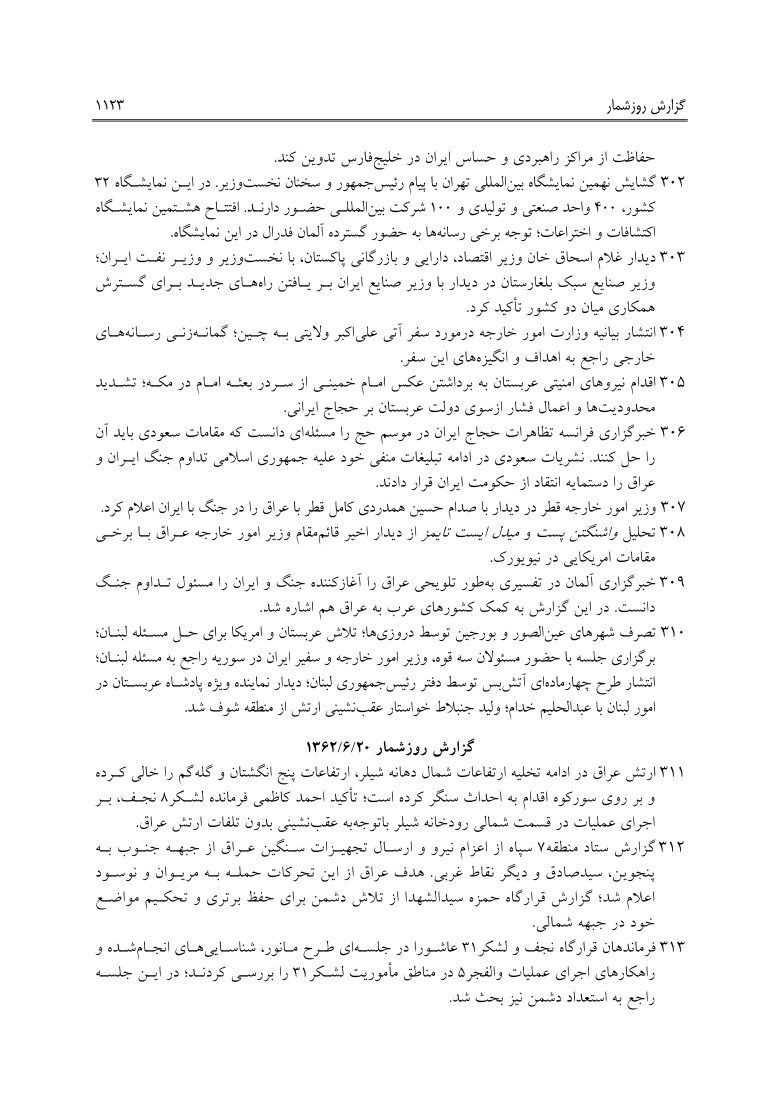 گزارش روزشمار ۱۱۲۳
حفاظت از مراکز راهبردی و حساس ایران در خلیج‌فارس تدوین کند.
۳۰۲ گشایش نهمین نمایشگاه بین‌المللی تهران با پیام رئیس‌جمهور و سخنان نخست‌وزیر. در ایـن نمایشـگاه ۳۲
کشور، ۴۰۰ واحد صنعتی و تولیدی و ۱۰۰ شرکت بین‌المللـی حضـور دارنـد. افتتـاح هشـتمین نمایشـگاه
اکتشافات و اختراعات؛ توجه برخی رسانه‌ها به حضور گسترده آلمان فدرال در این نمایشگاه.
۳۰۳ دیدار غلام اسحاق خان وزیر اقتصاد، دارایی و بازرگانی پاکستان، با نخست‌وزیر و وزیـر نفـت ایـران؛
وزیر صنایع سبک بلغارستان در دیدار با وزیر صنایع ایران بـر یـافتن راه‌هـای جدیـد بـرای گسـترش
همکاری میان دو کشور تأکید کرد.
۳۰۴ انتشار بیانیه وزارت امور خارجه درمورد سفر آتی علی‌اکبر ولایتی بـه چـین؛ گمانـه‌زنـی رسـانه‌هـای
خارجی راجع به اهداف و انگیزه‌های این سفر.
۳۰۵ اقدام نیروهای امنیتی عربستان به برداشتن عکس امـام خمینـی از سـردر بعثـه امـام در مکـه؛ تشـدید
محدودیت‌ها و اعمال فشار ازسوی دولت عربستان بر حجاج ایرانی.
۳۰۶ خبرگزاری فرانسه تظاهرات حجاج ایران در موسم حج را مسئله‌ای دانست که مقامات سعودی باید آن
را حل کنند. نشریات سعودی در ادامه تبلیغات منفی خود علیه جمهوری اسلامی تداوم جنگ ایـران و
عراق را دستمایه انتقاد از حکومت ایران قرار دادند.
۳۰۷ وزیر امور خارجه قطر در دیدار با صدام حسین همدردی کامل قطر با عراق را در جنگ با ایران اعلام کرد.
۳۰۸ تحلیل واشنگتن پست و میدل ایست تایمز از دیدار اخیر قائم‌مقام وزیر امور خارجه عـراق بـا برخـی
مقامات امریکایی در نیویورک.
۳۰۹ خبرگزاری آلمان در تفسیری به‌طور تلویحی عراق را آغازکننده جنگ و ایران را مسئول تـداوم جنـگ
دانست. در این گزارش به کمک کشورهای عرب به عراق هم اشاره شد.
۳۱۰ تصرف شهرهای عین‌الصور و بورجین توسط دروزی‌ها؛ تلاش عربستان و امریکا برای حـل مسـئله لبنـان؛
برگزاری جلسه با حضور مسئولان سه قوه، وزیر امور خارجه و سفیر ایران در سوریه راجع به مسئله لبنـان؛
انتشار طرح چهارماده‌ای آتش‌بس توسط دفتر رئیس‌جمهوری لبنان؛ دیدار نماینده ویژه پادشـاه عربسـتان در
امور لبنان با عبدالحلیم خدام؛ ولید جنبلاط خواستار عقب‌نشینی ارتش از منطقه شوف شد.
گزارش روزشمار ۱۳۶۲/۶/۲۰
۳۱۱ ارتش عراق در ادامه تخلیه ارتفاعات شمال دهانه شیلر، ارتفاعات پنج انگشتان و گله‌گم را خالی کـرده
و بر روی سورکوه اقدام به احداث سنگر کرده است؛ تأکید احمد کاظمی فرمانده لشـکر۸ نجـف، بـر
اجرای عملیات در قسمت شمالی رودخانه شیلر باتوجه‌به عقب‌نشینی بدون تلفات ارتش عراق.
۳۱۲ گزارش ستاد منطقه۷ سپاه از اعزام نیرو و ارسـال تجهیـزات سـنگین عـراق از جبهـه جنـوب بـه
پنجوین، سیدصادق و دیگر نقاط غربی. هدف عراق از این تحرکات حملـه بـه مریـوان و نوسـود
اعلام شد؛ گزارش قرارگاه حمزه سیدالشهدا از تلاش دشمن برای حفظ برتری و تحکـیم مواضـع
خود در جبهه شمالی.
۳۱۳ فرماندهان قرارگاه نجف و لشکر۳۱ عاشـورا در جلسـه‌ای طـرح مـانور، شناسـایی‌هـای انجـام‌شـده و
راهکارهای اجرای عملیات والفجر۵ در مناطق مأموریت لشـکر۳۱ را بررسـی کردنـد؛ در ایـن جلسـه
راجع به استعداد دشمن نیز بحث شد.